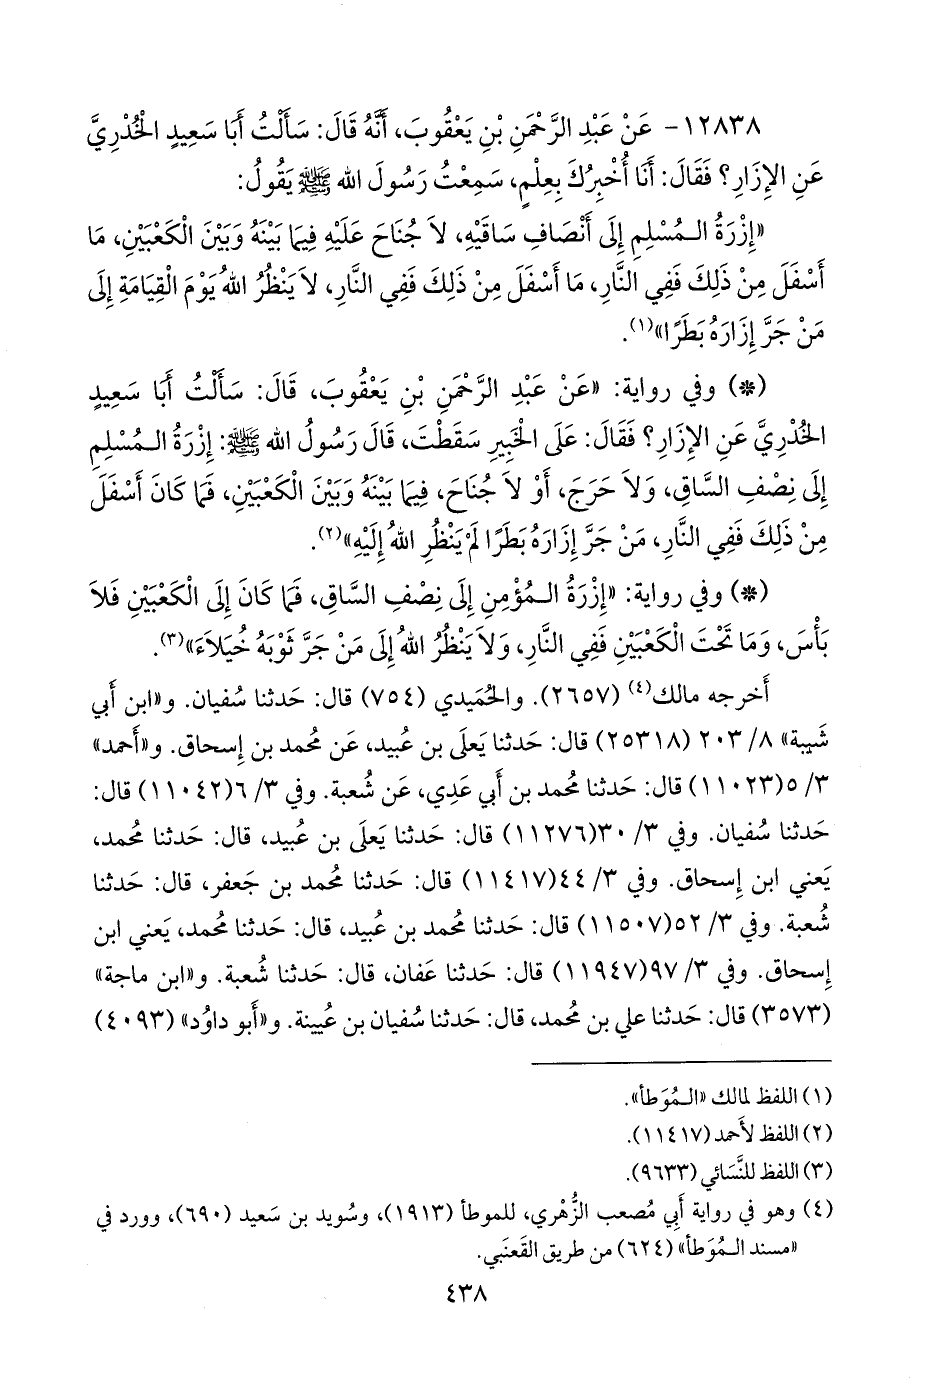 ١٢٨٣٨- عَنْ عَبْدِ الرَّحْمَنِ بْنِ يَعْقُوبَ، أَنَّهُ قَالَ: سَأَلْتُ أَبَا سَعِيدٍ الْخُدْرِيَّ
عَنِ الإِزَارِ؟ فَقَالَ: أَنَا أُخْبِرُكَ بِعِلْمٍ، سَمِعْتُ رَسُولَ الله ﷺ يَقُولُ:
«إِزْرَةُ الـمُسْلِمِ إِلَى أَنْصَافِ سَاقَيْهِ، لاَ جُنَاحَ عَلَيْهِ فِيمَا بَيْنَهُ وَبَيْنَ الْكَعْبَيْنِ، مَا
أَسْفَلَ مِنْ ذَلِكَ فَفِي النَّارِ، مَا أَسْفَلَ مِنْ ذَلِكَ فَفِي النَّارِ، لاَ يَنْظُرُ اللهُ يَوْمَ الْقِيَامَةِ إِلَى
مَنْ جَرَّ إِزَارَهُ بَطَرًا»(١).
(*) وفي رواية: «عَنْ عَبْدِ الرَّحْمَنِ بْنِ يَعْقُوبَ، قَالَ: سَأَلْتُ أَبَا سَعِيدٍ
الْخُدْرِيَّ عَنِ الإِزَارِ؟ فَقَالَ: عَلَى الْخَبِيرِ سَقَطْتَ، قَالَ رَسُولُ الله ﷺ: إِزْرَةُ الـمُسْلِمِ
إِلَى نِصْفِ السَّاقِ، وَلاَ حَرَجَ، أَوْ لاَ جُنَاحَ، فِيمَا بَيْنَهُ وَبَيْنَ الْكَعْبَيْنِ، فَمَا كَانَ أَسْفَلَ
مِنْ ذَلِكَ فَفِي النَّارِ، مَنْ جَرَّ إِزَارَهُ بَطَرًا لَمْ يَنْظُرِ اللهُ إِلَيْهِ»(٢).
(*) وفي رواية: «إِزْرَةُ الـمُؤْمِنِ إِلَى نِصْفِ السَّاقِ، فَمَا كَانَ إِلَى الْكَعْبَيْنِ فَلاَ
بَأْسَ، وَمَا تَحْتَ الْكَعْبَيْنِ فَفِي النَّارِ، وَلاَ يَنْظُرُ اللهُ إِلَى مَنْ جَرَّ ثَوْبَهُ خُيَلاَءَ»(٣).
أَخرجه مالك(٤) (٢٦٥٧). والحُمَيدي (٧٥٤) قال: حَدثنا سُفيان. و«ابن أَبي
شَيبة» ٨/ ٢٠٣ (٢٥٣١٨) قال: حَدثنا يَعلَى بن عُبيد، عَن مُحمد بن إِسحاق. و«أَحمد»
٣/ ٥(١١٠٢٣) قال: حَدثنا مُحمد بن أَبي عَدِي، عَن شُعبة. وفي ٣/ ٦(١١٠٤٢) قال:
حَدثنا سُفيان. وفي ٣/ ٣٠(١١٢٧٦) قال: حَدثنا يَعلَى بن عُبيد، قال: حَدثنا مُحمد،
يَعني ابن إِسحاق. وفي ٣/ ٤٤(١١٤١٧) قال: حَدثنا مُحمد بن جَعفر، قال: حَدثنا
شُعبة. وفي ٣/ ٥٢(١١٥٠٧) قال: حَدثنا مُحمد بن عُبيد، قال: حَدثنا مُحمد، يَعني ابن
إِسحاق. وفي ٣/ ٩٧(١١٩٤٧) قال: حَدثنا عَفان، قال: حَدثنا شُعبة. و«ابن ماجة»
(٣٥٧٣) قال: حَدثنا علي بن مُحمد، قال: حَدثنا سُفيان بن عُيينة. و«أَبو داوُد» (٤٠٩٣)
(١) اللفظ لمالك «الـمُوَطأ».
(٢) اللفظ لأَحمد (١١٤١٧).
(٣) اللفظ للنَّسَائي (٩٦٣٣).
(٤) وهو في رواية أَبي مُصعب الزُّهْري، للموطأ (١٩١٣)، وسُويد بن سَعيد (٦٩٠)، وورد في
«مسند الـمُوَطأ» (٦٢٤) من طريق القَعنَبي.
٤٣٨